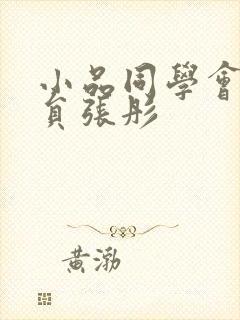 小品同學會
員張彤
黃渤